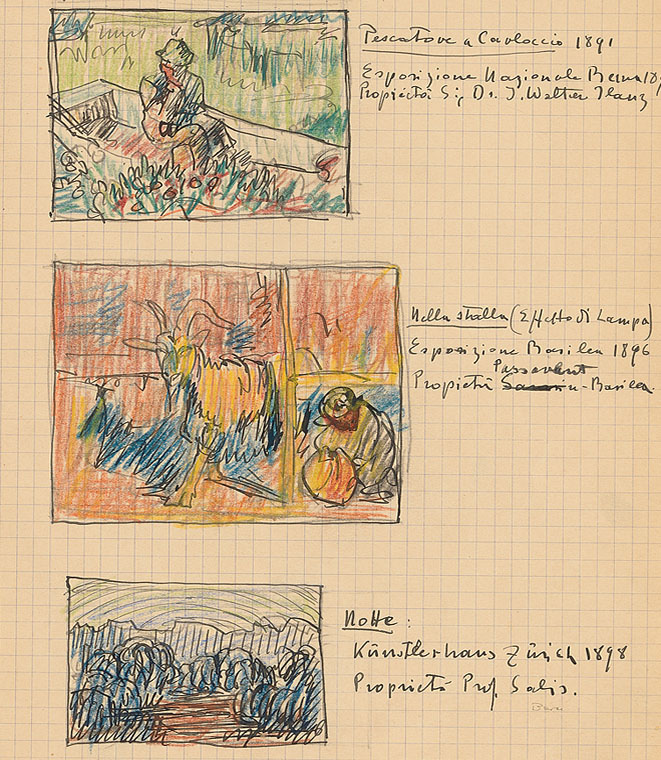 Pescatore a Cavloccio 1891
Esposizione Nazionale Berna 18
Propietà Sig Dr. J. Walther Ilanz
Nella stalla (Effetto di Lampa)
Esposizione Basilea 1896
Passavant
Propietà - Basilea.
Notte:
Künstlerhaus Zürich 1898
Proprietà Prof. Salis.